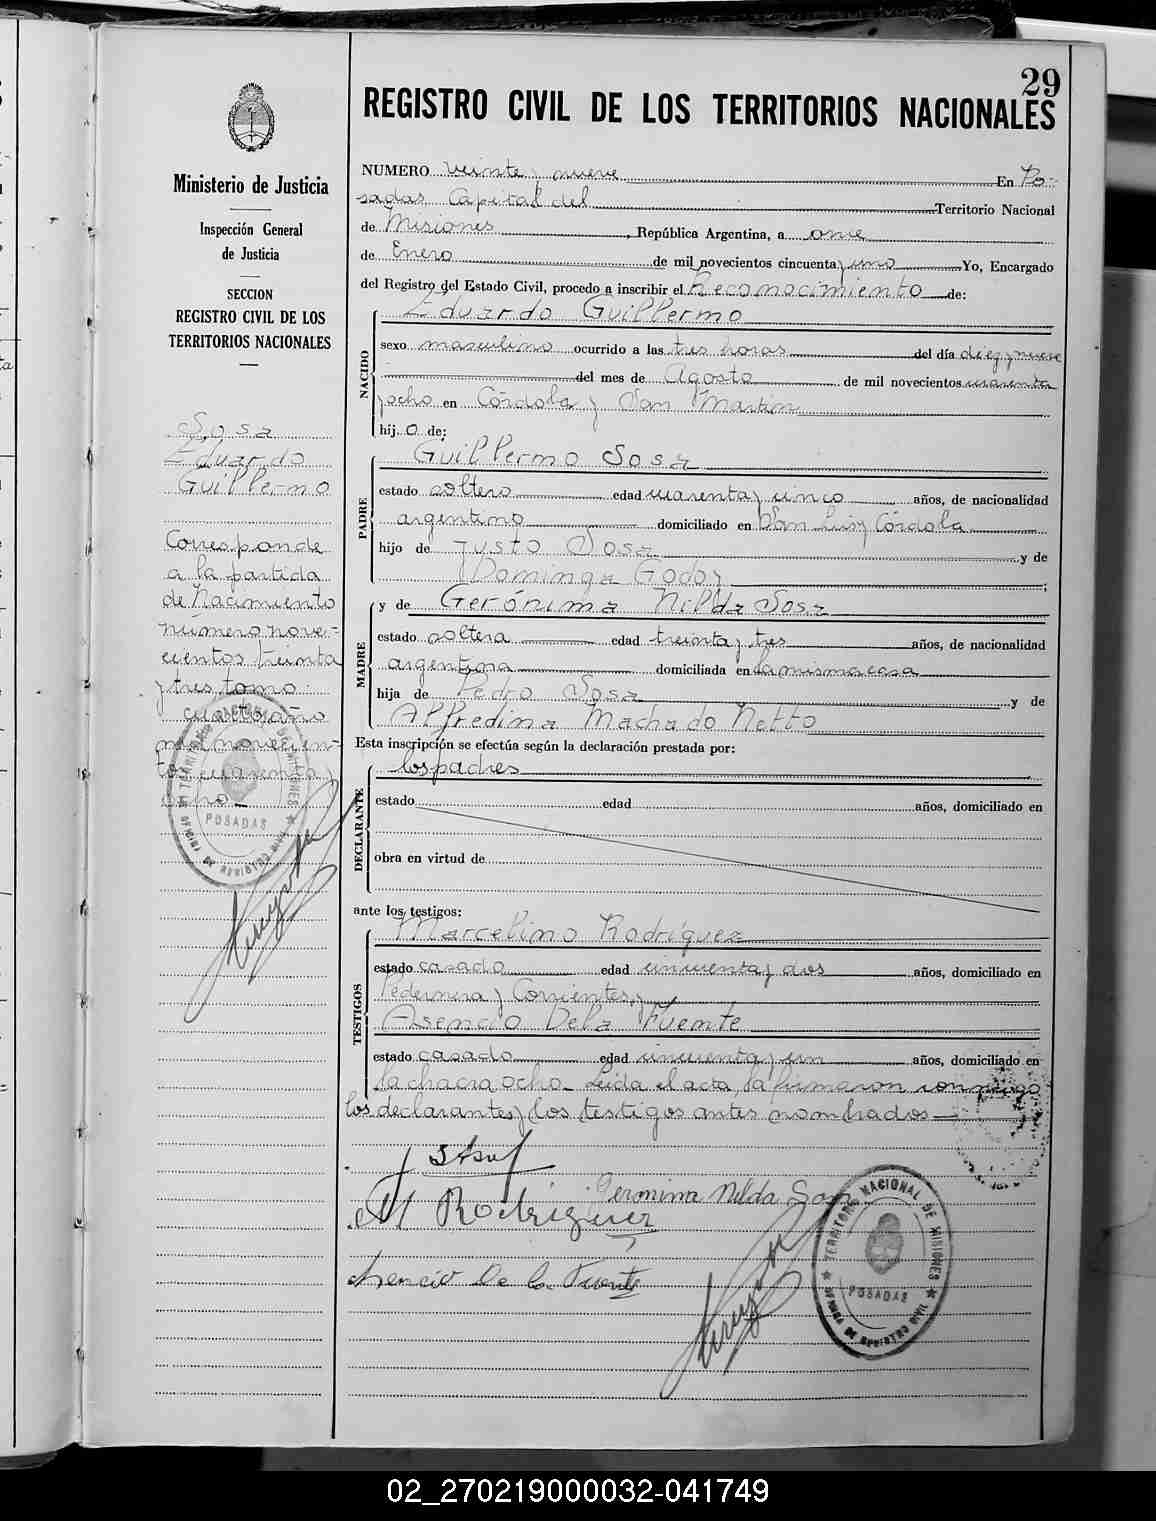 29
REGISTRO CIVIL DE LOS TERRITORIOS NACIONALES
Ministerio de Justicia
Inspección General
de Justicia
SECCION
REGISTRO CIVIL DE LOS
TERRITORIOS NACIONALES
Sosa
Eduardo
Guillermo
Corresponde
a la partida
de Nacimiento
número nove-
cientos treinta
y tres tomo
cuarto año
mil novecien-
tos cuarenta y
NUMERO veinte y nueve En Po-
sadas Capital del Territorio Nacional
de Misiones, República Argentina, a once
de Enero de mil novecientos cincuenta y uno Yo, Encargado
del Registro del Estado Civil, procedo a inscribir el Reconocimiento de:
NACIDO
Eduardo Guillermo
sexo masculino ocurrido a las tres horas del día diez y nueve
del mes de Agosto de mil novecientos cuarenta
y ocho en Córdoba y San Martín
hijo de:
PADRE
Guillermo Sosa
estado soltero edad cuarenta y cinco años, de nacionalidad
argentino domiciliado en San Luis y Córdoba
hijo de Justo Sosa y de
Dominga Godoy
MADRE
y de Gerónima Nilda Sosa
estado soltera edad treinta y tres años, de nacionalidad
argentina domiciliada en la misma casa
hija de Pedro Sosa y de
Alfredina Machado Netto
Esta inscripción se efectúa según la declaración prestada por:
DECLARANTE
los padres
estado edad años, domiciliado en
obra en virtud de
ante los testigos:
TESTIGOS
Marcelino Rodriguez
estado casado edad cincuenta y dos años, domiciliado en
Pedernera y Corrientes, y
Asencio Dela Fuente
estado casado edad cincuenta y un años, domiciliado en
la chacra ocho. Leída el acta, la firmaron conmigo
los declarantes y los testigos antes nombrados
Germina Nilda Sosa
M Rodriguez
Asencio De la Fuente
TERRITORIO NACIONAL DE MISIONES
POSADAS
OFICINA DE REGISTRO CIVIL
TERRITORIO NACIONAL DE MISIONES
POSADAS
OFICINA DE REGISTRO CIVIL
02_270219000032-041749